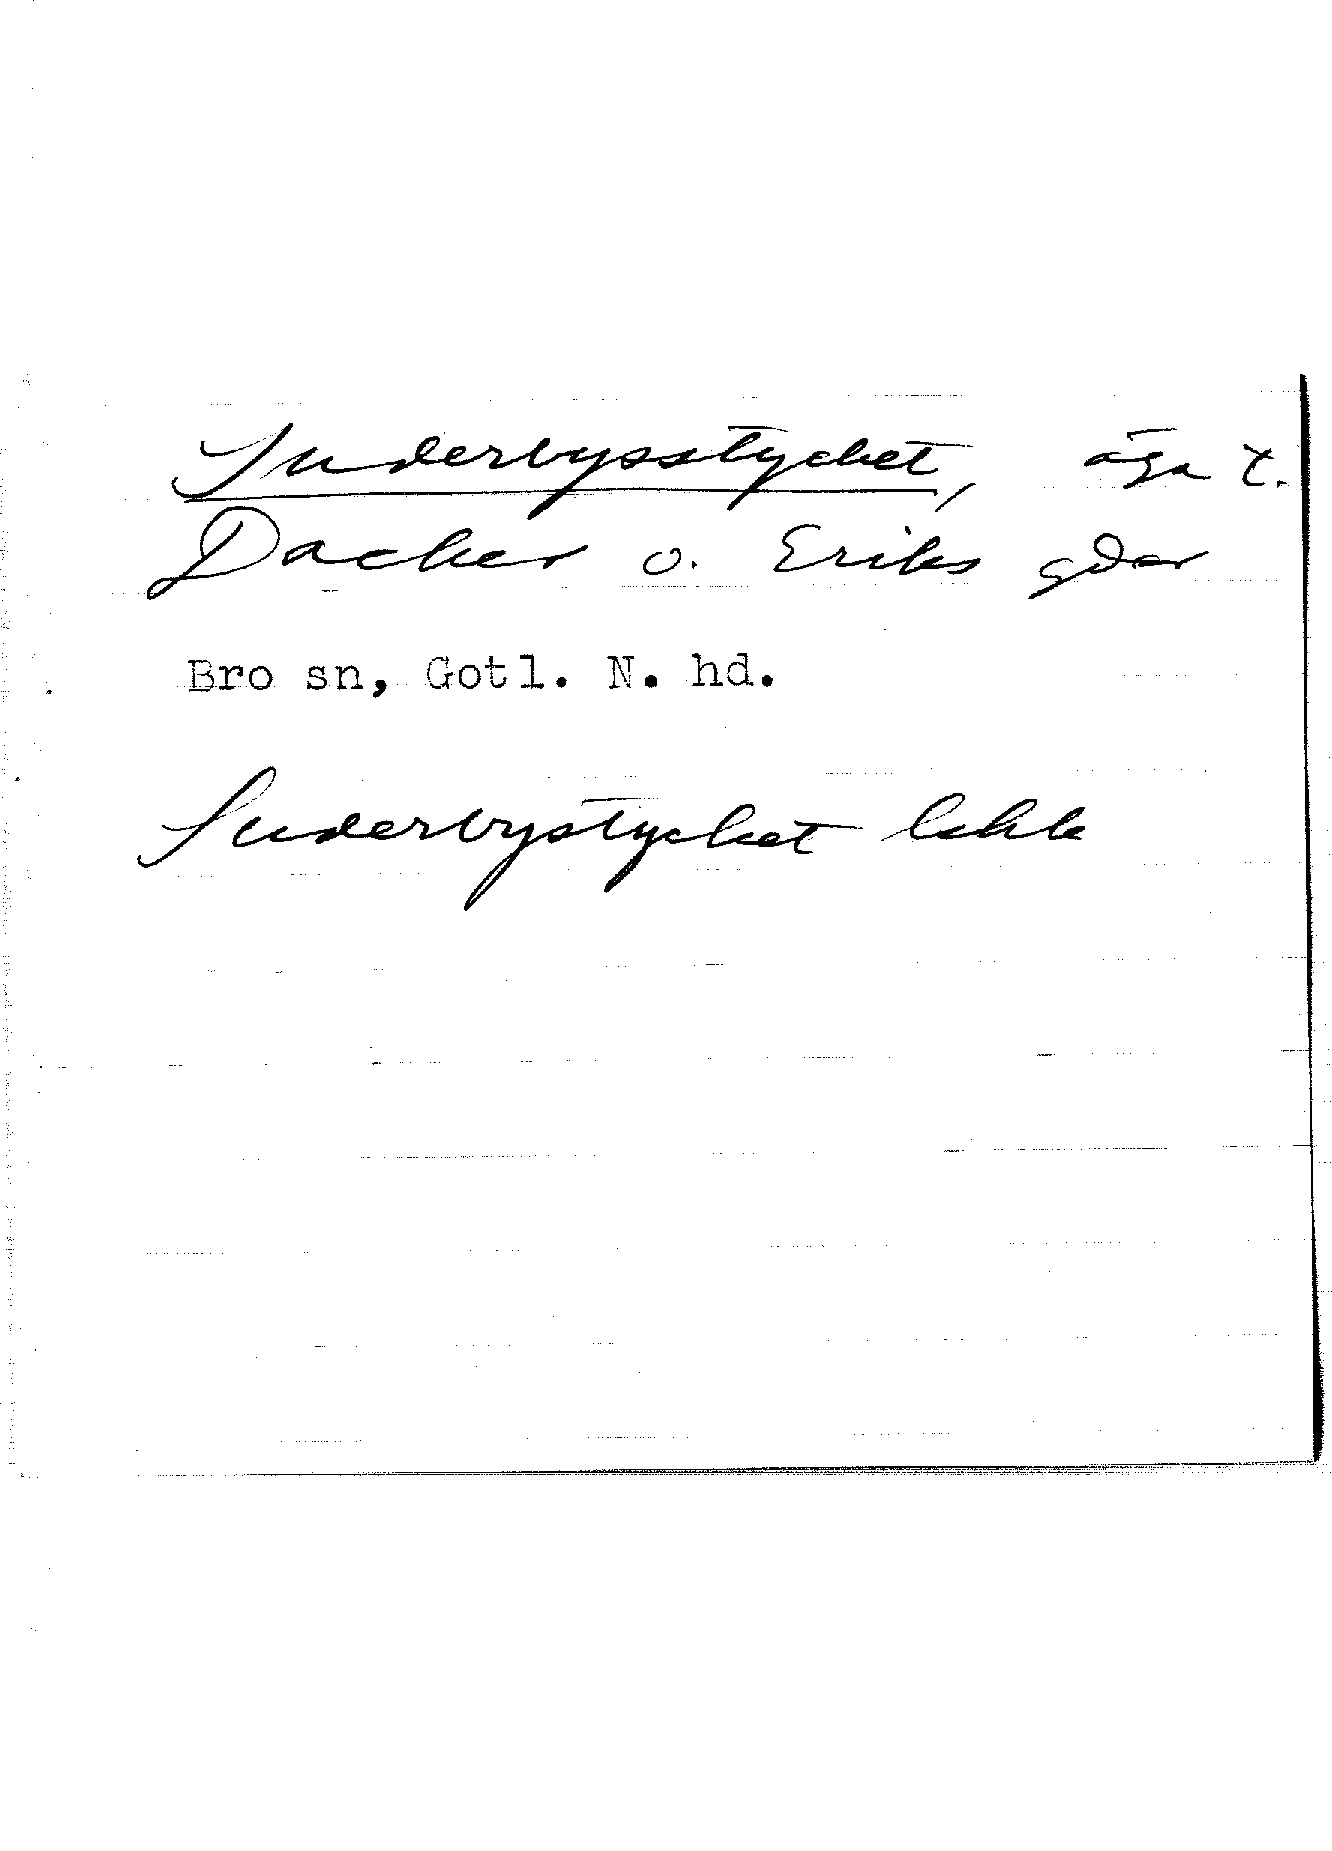 Suderbysstycket, äga t.
Dacker o. Eriks gdar
Bro sn, Gotl. N. hd.
Suderbystycket